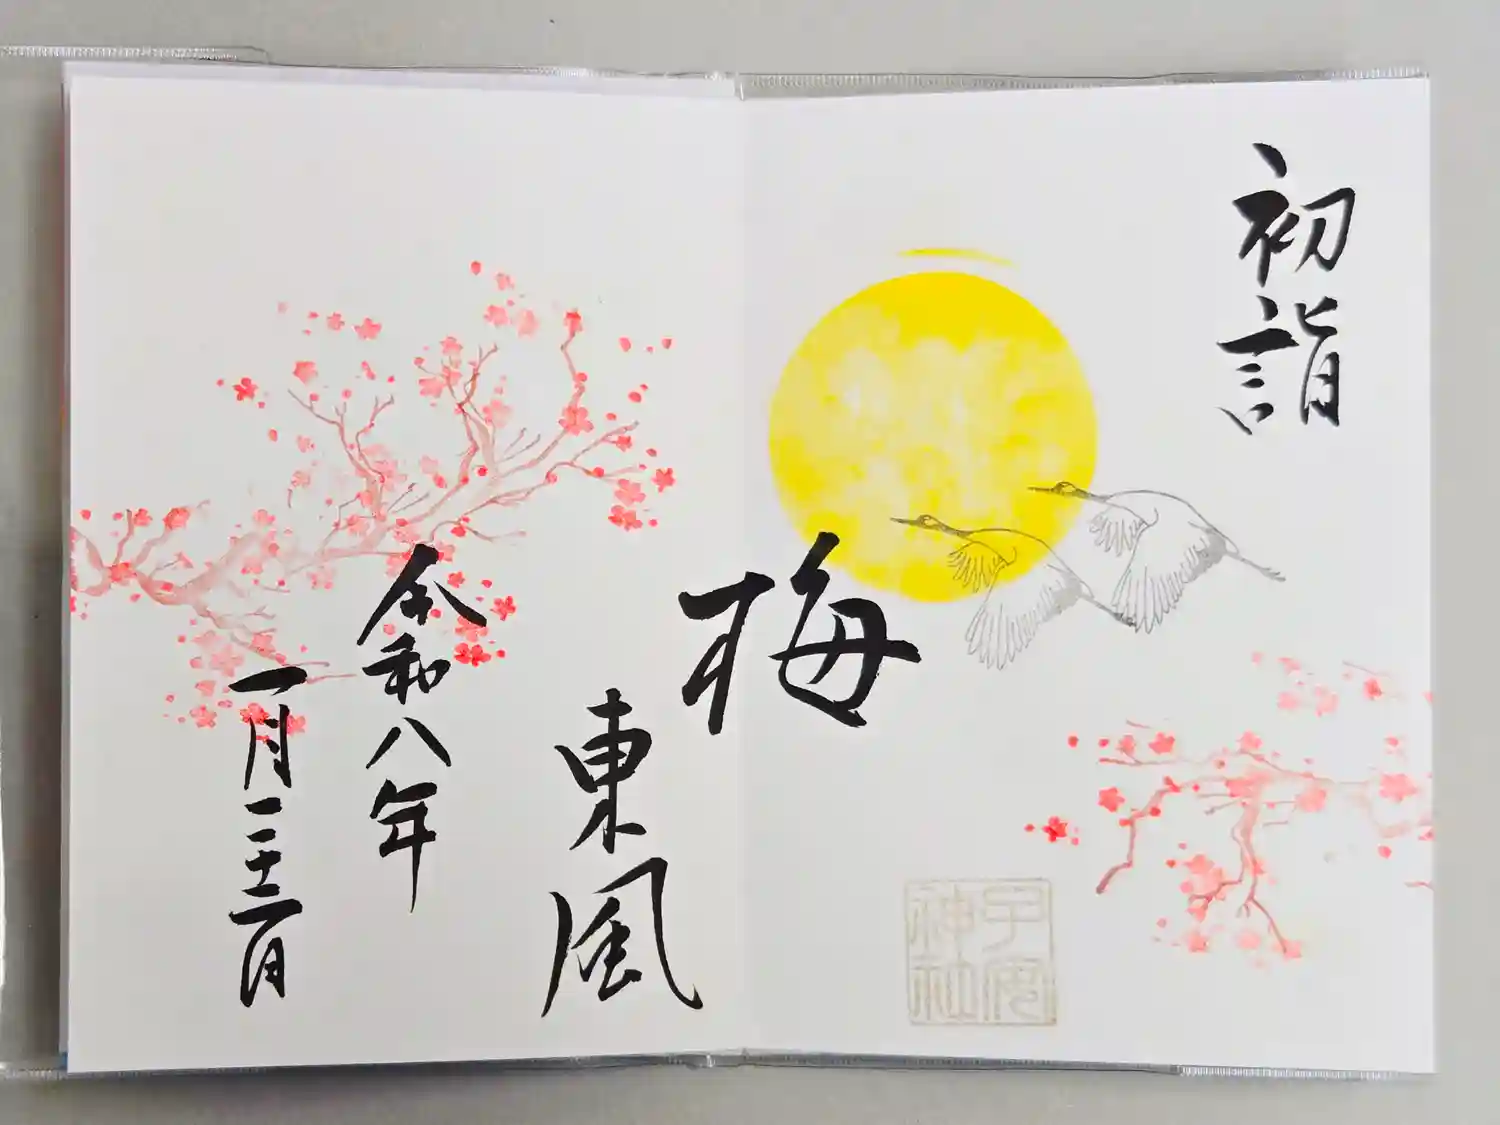 初詣
梅東風
令和八年
一月二十二日
子安
神社